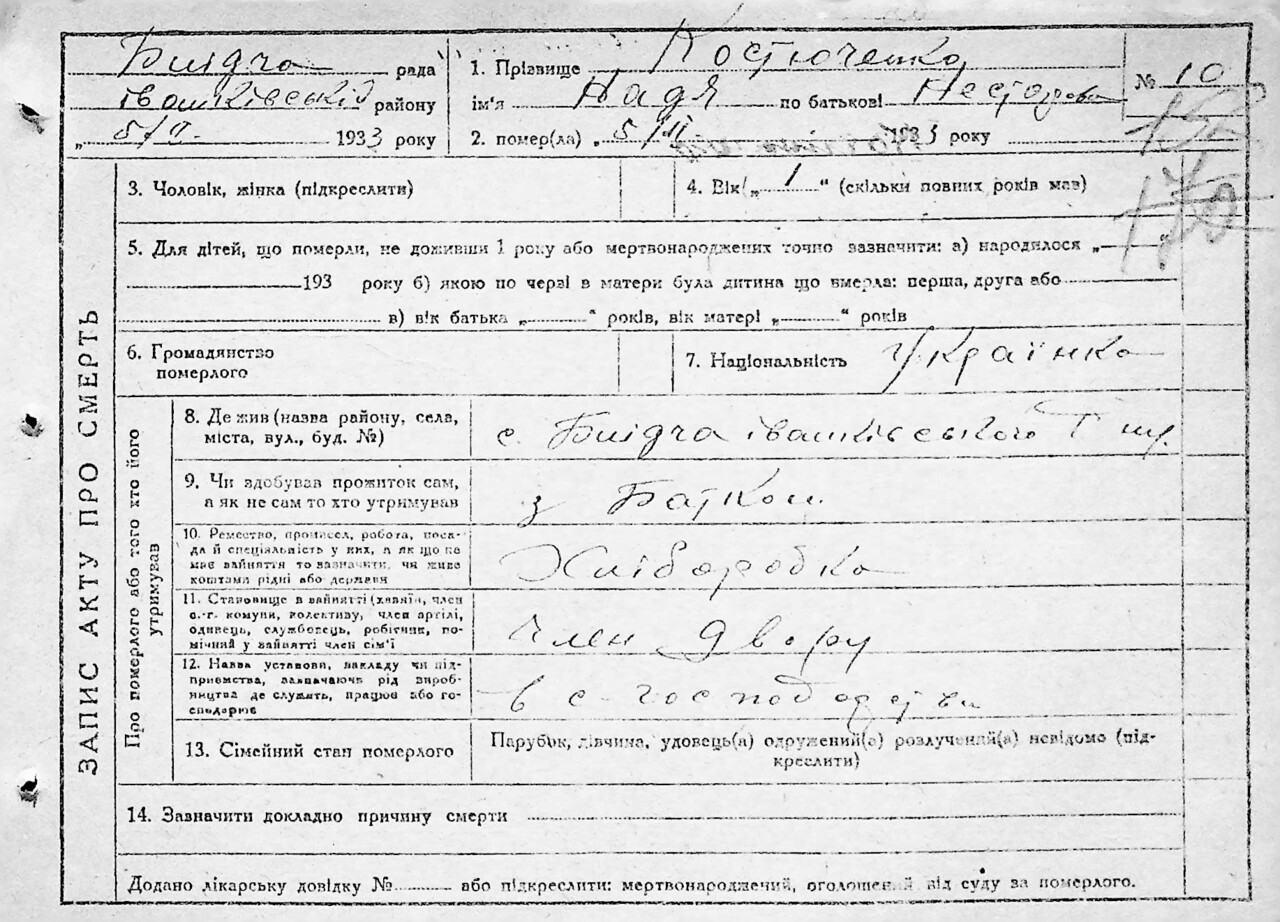 Блідча рада
іванківський району
„ 5/II. 1933 року
1. Прізвище Костюченко
ім'я Надя по батькові Несторова
2. помер(ла) „ 5/II 1933 року
№ 10
ЗАПИС АКТУ ПРО СМЕРТЬ
3. Чоловік, жінка (підкреслити)
4. Вік („ 1 “ (скільки повних років мав)
5. Для дітей, що померли, не доживши 1 року або мертвонароджених точно зазначити: а) народилося „ “
193 року б) якою по черзі в матери була дитина що вмерла: перша, друга або
в) вік батька „ “ років, вік матері „ “ років
6. Громадянство
померлого
7. Національність Українка
Про померлого або того хто його
утримував
8. Де жив (назва району, села,
міста, вул., буд. №)
с. Блідча іванківського
9. Чи здобував прожиток сам,
а як не сам то хто утримував
з Батком
10. Ремество, промисел, робота, поса-
да й спеціальність у них, а як що не
має зайняття то зазначити, чи живе
коштами рідні або держави
Хліборобка
11. Становище в зайнятті (хазяїн, член
с.-г. комуни, колективу, член артілі,
одинець, службовець, робітник, по-
мічний у зайнятті член сім'ї
Член двору
12. Назва установи, закладу чи під-
приємства, зазначаючи рід вироб-
ництва де служить, працює або го-
сподарює
в с-господарстві
13. Сімейний стан померлого
Парубок, дівчина, удовець(а) одружений(а) розлучений(а) невідомо (під-
креслити)
14. Зазначити докладно причину смерти
Додано лікарську довідку № або підкреслити: мертвонароджений, оголошений від суду за померлого.